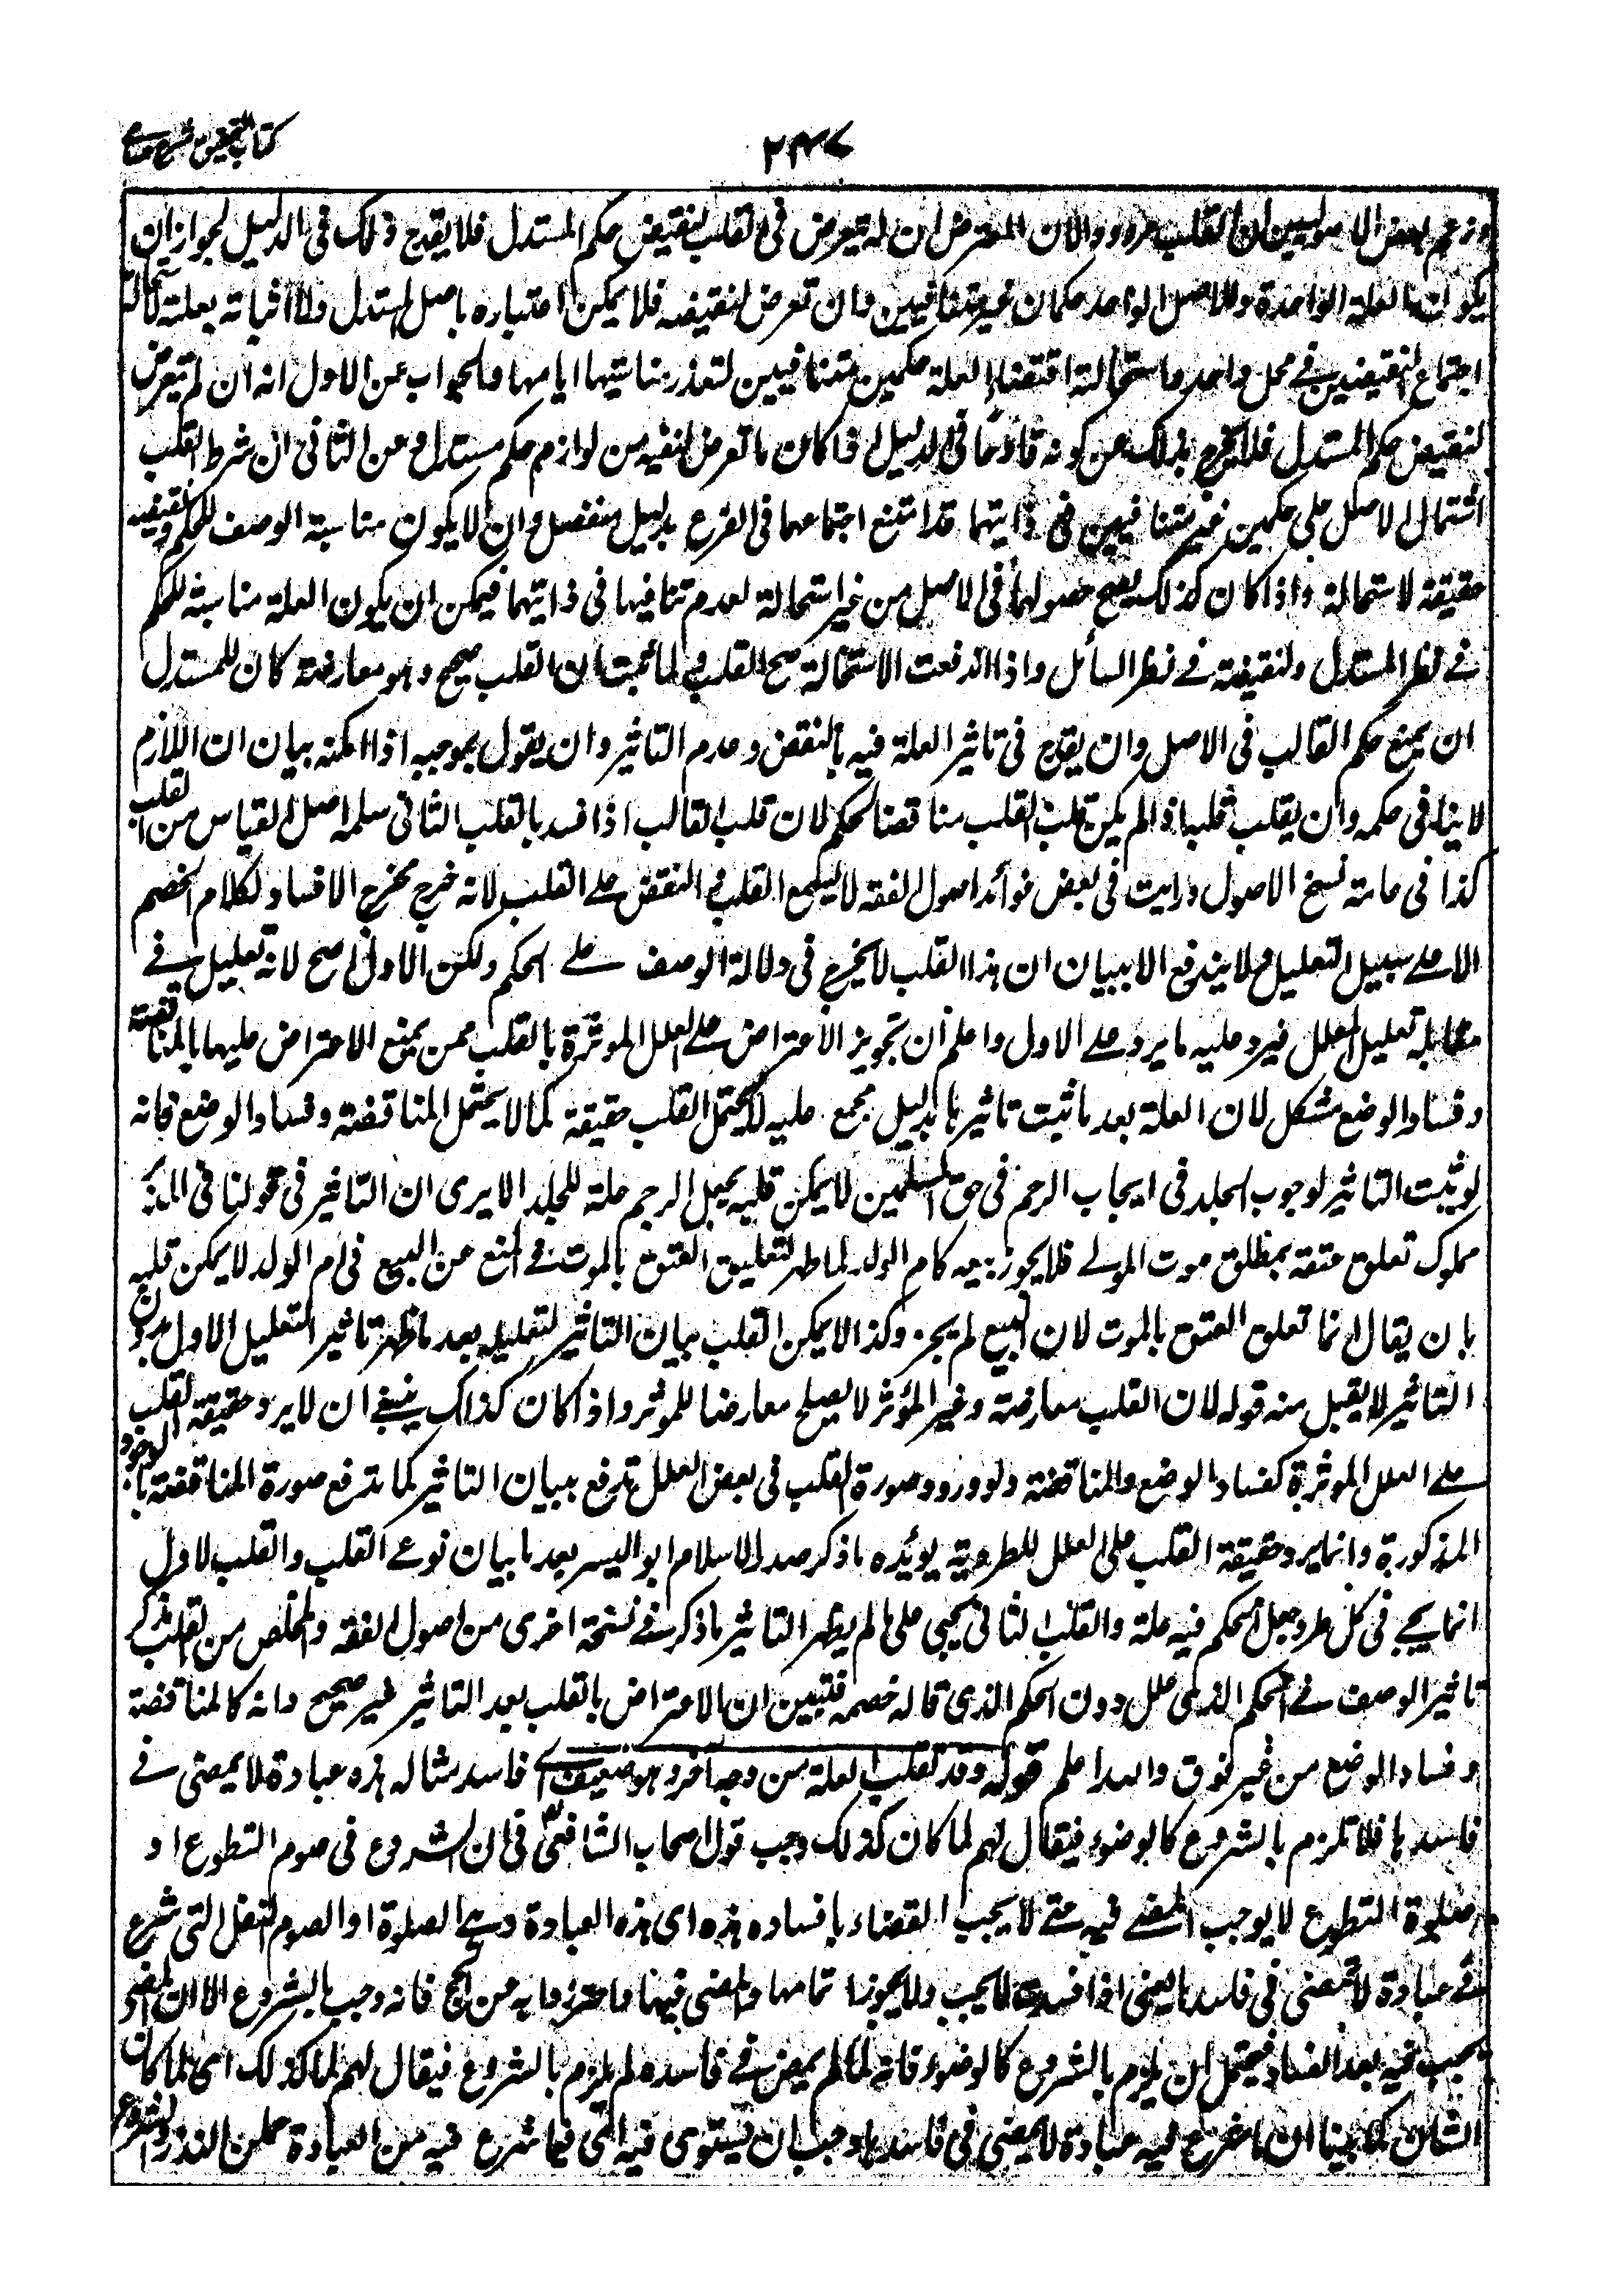 كتاب التحقيق شرح حسامى
٢٤٧
وزعم بعض الاصوليين ان القلب مردود لان المعترض ان لم يتعرض فى القلب لنقيض حكم المستدل فلا يقدح ذلك فى الدليل لجواز ان
يكون للعلة الواحدة وللاصل الواحد حكمان غير متنافيين وان تعرض لنقيضه فلا يمكن اعتباره باصل المستدل ولا اثباته بعلته لاستحالة
اجتماع النقيضين فى محل واحد واستحالة اقتضاء العلة حكمين متنافيين لتعذر مناسبتها اياهما والجواب عن الاول انه ان لم يتعرض
لنقيض حكم المستدل فلا يخرج بذلك عن كونه قادحا فى الدليل اذا كان ما تعرض لنفيه من لوازم حكم مستدل وعن الثانى ان شرط القلب
اشتمال الاصل على حكمين غير متنافيين فى ذاتيهما قد امتنع اجتماعهما فى الفرع بدليل منفصل وان لا يكون مناسبة الوصف للحكم ونقيضه
حقيقة لاستحالة واذا كان كذلك يصح حصولهما فى الاصل من غير استحالة لعدم تنافيهما فى ذاتيهما فيمكن ان يكون العلة مناسبة للحكم
فى نظر المستدل ولنقيضه فى نظر السائل واذا اندفعت الاستحالة صح القلب ولما ثبت ان القلب صحيح وهو معارضة كان للمستدل
ان يمنع حكم القالب فى الاصل وان يقدح فى تاثير العلة فيه بالنقض وعدم التاثير وان يقول بموجبه اذا امكنه بيان ان اللازم
لا ينافى حكمه وان يقلب قلبه اذا لم يكن قلب القلب مناقضا لحكمه لان قلب القالب اذا فسد بالقلب الثانى سلم اصل القياس من القلب
كذا فى عامة نسخ الاصول ورايت فى بعض فوائد اصول الفقه لا يسمع القلب فى النقض على القلب لانه خرج مخرج الافساد لكلام الخصم
الا على سبيل التعليل ولا يندفع الا ببيان ان هذا القلب لا يخرج فى دلالة الوصف على الحكم ولكن الاول اصح لانه تعليل فى
مقابلة تعليل المعلل فيرد عليه ما يرد على الاول واعلم ان تجويز الاعتراض على العلل الموثرة بالقلب ممن يمنع الاعتراض عليها بالمناقضة
وفساد الوضع مشكل لان العلة بعد ما ثبت تاثيرها بدليل مجمع عليه لا يحتمل القلب حقيقة كما لا يحتمل المناقضة وفساد الوضع فانه
لو ثبت التاثير لوجوب الجلد فى ايجاب الرجم فى حق المسلمين لا يمكن قلبه بجعل الرجم علة للجلد الا يرى ان التاثير فى قولنا فى المدبر
مملوك تعلق عتقه بمطلق موت المولى فلا يجوز بيعه كام الولد لما ظهر لتعليق العتق بالموت فى المنع عن البيع فى ام الولد لا يمكن قلبه
بان يقال انما تعلق العتق بالموت لان البيع لم يجز وكذا لا يمكن القلب ببيان التاثير لتعليله بعد ما ظهر تاثير التعليل الاول بدون
التاثير لا يقبل منه قوله لان القلب معارضة وغير المؤثر لا يصلح معارضا للموثر واذا كان كذلك ينبغى ان لا يرد حقيقة القلب
على العلل الموثرة كفساد الوضع والمناقضة ولو ورد صورة القلب فى بعض العلل تدفع ببيان التاثير كما تدفع صورة المناقضة بالوجوه
المذكورة وانما يرد حقيقة القلب على العلل الطردية يويده ما ذكر صدر الاسلام ابو اليسر بعد ما بيان نوعى القلب والقلب الاول
انما يجى فى كل طرد جعل الحكم فيه علة والقلب الثانى يجيى على ما لم يظهر التاثير ما ذكر فى نسخة اخرى من اصول الفقه والمخلص من القلب ذكر
تاثير الوصف فى الحكم الذى علل دون الحكم الذى قاله خصمه فتبين ان الاعتراض بالقلب بعد التاثير غير صحيح وانه كالمناقضة
وفساد الوضع من غير فرق والله اعلم قوله وقد تقلب العلة من وجه آخر وهو ضعيف اى فاسد مثاله هذه عبادة لا يمضى فى
فاسدها فلا تلزم بالشروع كالوضوء فيقال لهم لما كان كذلك وجب قول اصحاب الشافعى فى ان الشروع فى صوم التطوع او
صلوة التطوع لا يوجب المضى فيه حتى لا يجب القضاء بافساده هذه اى هذه العبادة وهى الصلوة او الصوم النفل التى شرع
فى عبادة لا يمضى فى فاسدها يعنى اذا فسدت لا يجب ولا يجوز اتمامها والمضى فيها واحترزوا به عن الحج فانه وجب بالشروع الا ان المضى
يجب فيه بعد الفساد فيحتمل ان يلزم بالشروع كالوضوء فانه لما لم يمض فى فاسده لم يلزم بالشروع فيقال لهم لما كذلك اى لما كان
الشان كما بينا ان ما شرع فيه عبادة لا يمضى فى فاسدها وجب ان يستوى فيه اى فيما شرع فيه من العبادة عمل النذر والشروع